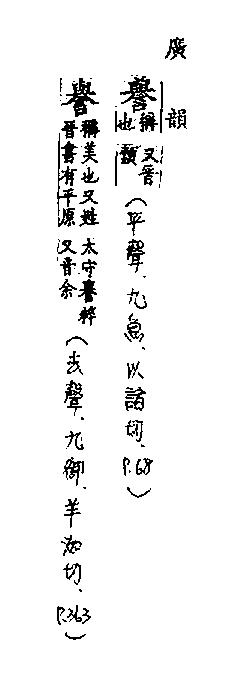 廣韻
譽 稱也 又音預 (平聲、九魚、以諸切、P.68)
譽 稱美也又姓晉書有平原太守譽粹又音余 (去聲、九御、羊洳切、P.363)